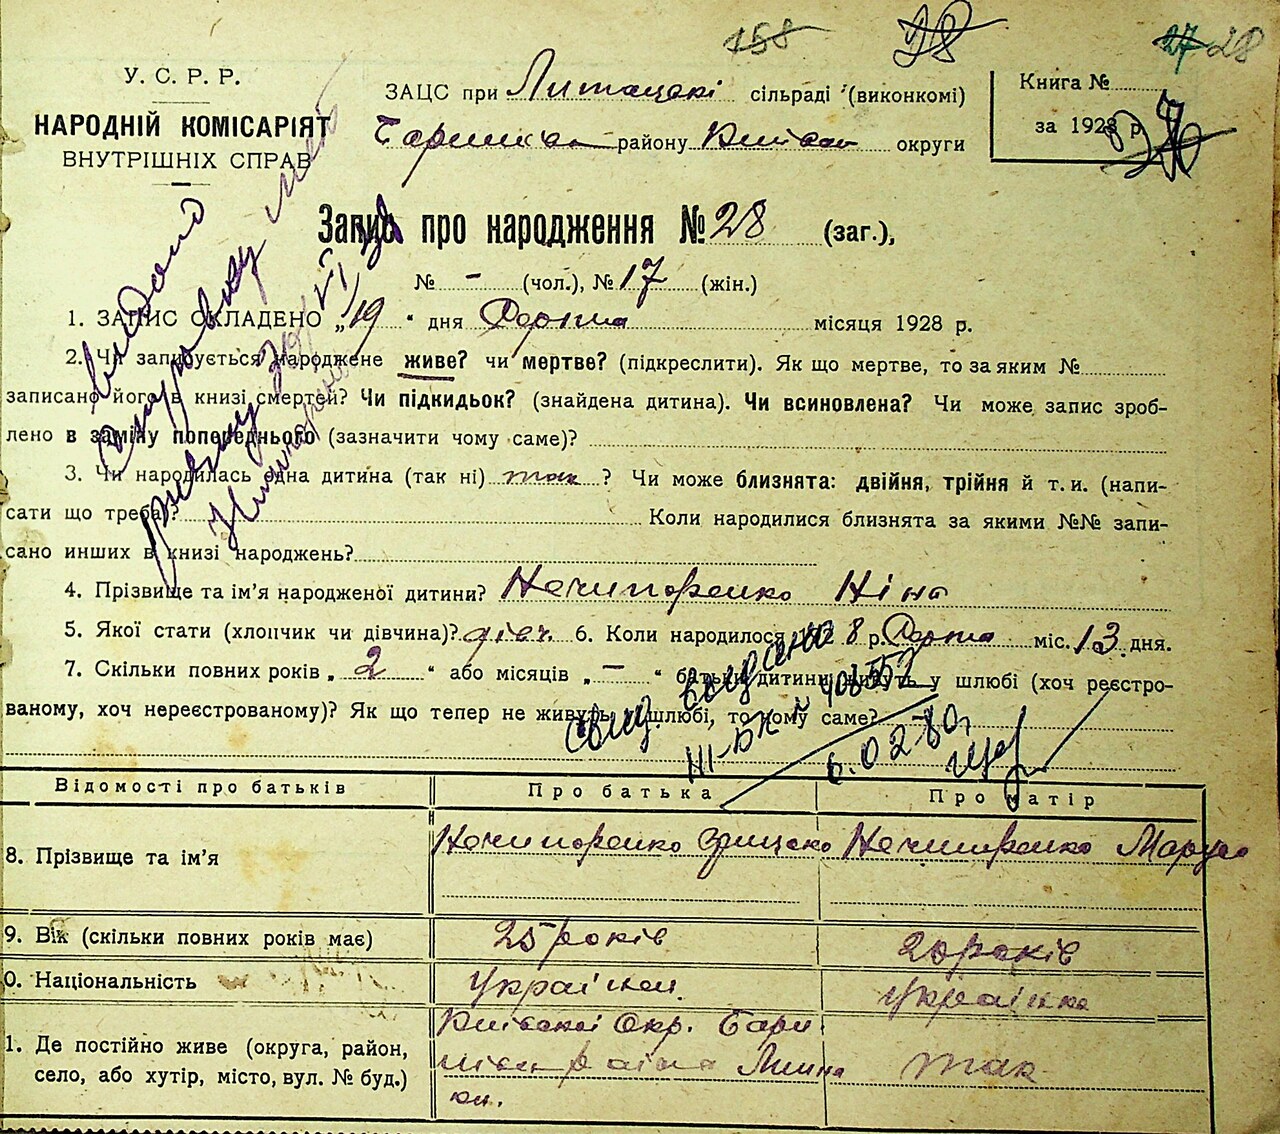 158 28 27 28
У. С. Р. Р.
НАРОДНІЙ КОМІСАРІЯТ
ВНУТРІШНІХ СПРАВ
ЗАЦС при сільраді (виконкомі)
району округи
Книга №
за 1928 р.
Запис про народження № 28 (заг.),
№ - (чол.), № 17 (жін.)
1. ЗАПИС СКЛАДЕНО „19“ дня місяця 1928 р.
2. Чи записується народжене живе? чи мертве? (підкреслити). Як що мертве, то за яким №
записано його в книзі смертей? Чи підкидьок? (знайдена дитина). Чи всиновлена? Чи може запис зроб-
лено в заміну попереднього (зазначити чому саме)?
3. Чи народилась одна дитина (так ні) так ? Чи може близнята: двійня, трійня й т. и. (напи-
сати що треба)? Коли народилися близнята за якими №№ запи-
сано инших в книзі народжень?
4. Прізвище та ім’я народженої дитини? Нечипоренко Ніна
5. Якої стати (хлопчик чи дівчина)? дівч. 6. Коли народилося 192 8 р. міс. 13 дня.
7. Скільки повних років „2“ або місяців „—“ батьки дитини живуть у шлюбі (хоч реєстро-
ваному, хоч нереєстрованому)? Як що тепер не живуть у шлюбі, то чому саме?
ІІІ-БК № 408552
6.02.80г
Відомості про батьків Про батька Про матір
8. Прізвище та ім’я Нечипоренко Грицько Нечипоренко Маруся
9. Вік (скільки повних років має) 25 років 20 років
0. Національність Українец. Українка
1. Де постійно живе (округа, район, Київської Окр. Бари
село, або хутір, місто, вул. № буд.) так